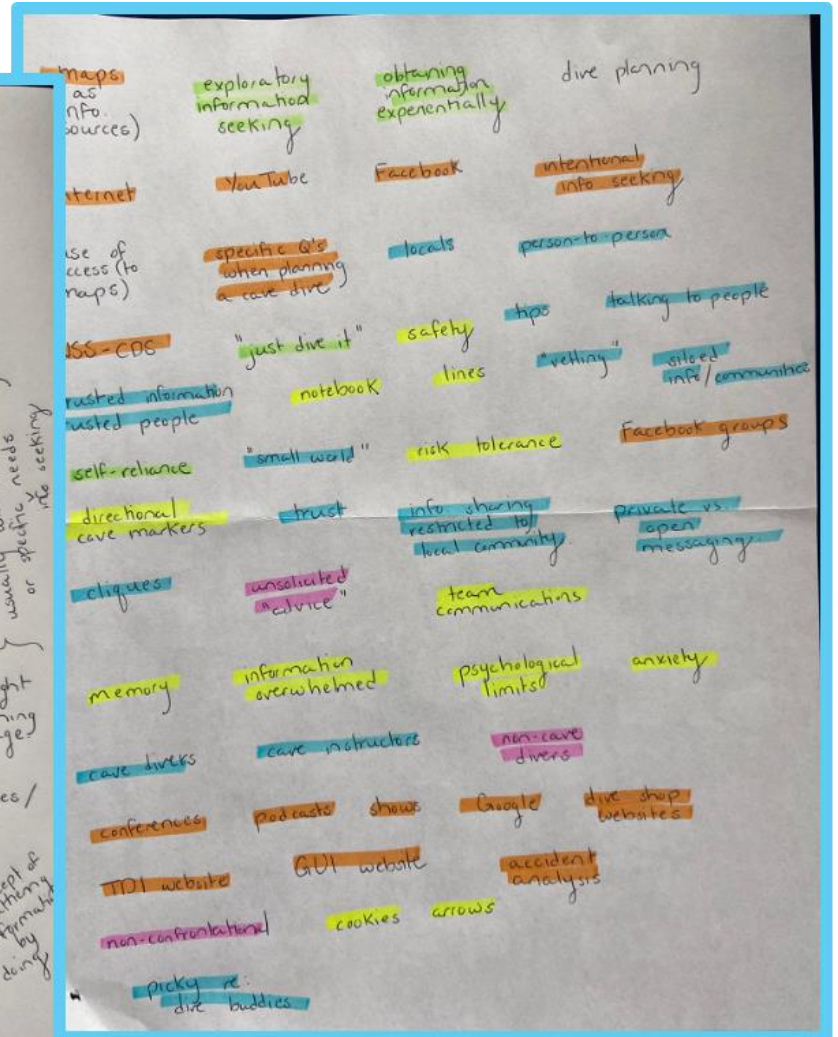 maps
as
info.
sources)
exploratory
information
seeking
obtaining
information
experientially
dive planning
internet
YouTube
Facebook
intentional
info seeking
access (to
maps)
specific Q's
when planning
a cave dive
locals
person-to-person
tips
talking to people
NSS-CDS
"just dive it"
safety
"vetting"
siloed
info/communities
trusted information
trusted people
notebook
lines
self-reliance
"small world"
risk tolerance
Facebook groups
directional
cave markers
trust
info sharing
restricted to
local community
private vs.
open
messaging
cliques
unsolicited
"advice"
team
communications
memory
information
overwhelmed
psychological
limits
anxiety
cave divers
cave instructors
non-cave
divers
conferences
podcasts shows
Google
dive shop
websites
TDI website
GUI website
accident
analysis
non-confrontational
cookies arrows
picky re:
dive buddies
usually
or specific needs
info seeking
doing
by